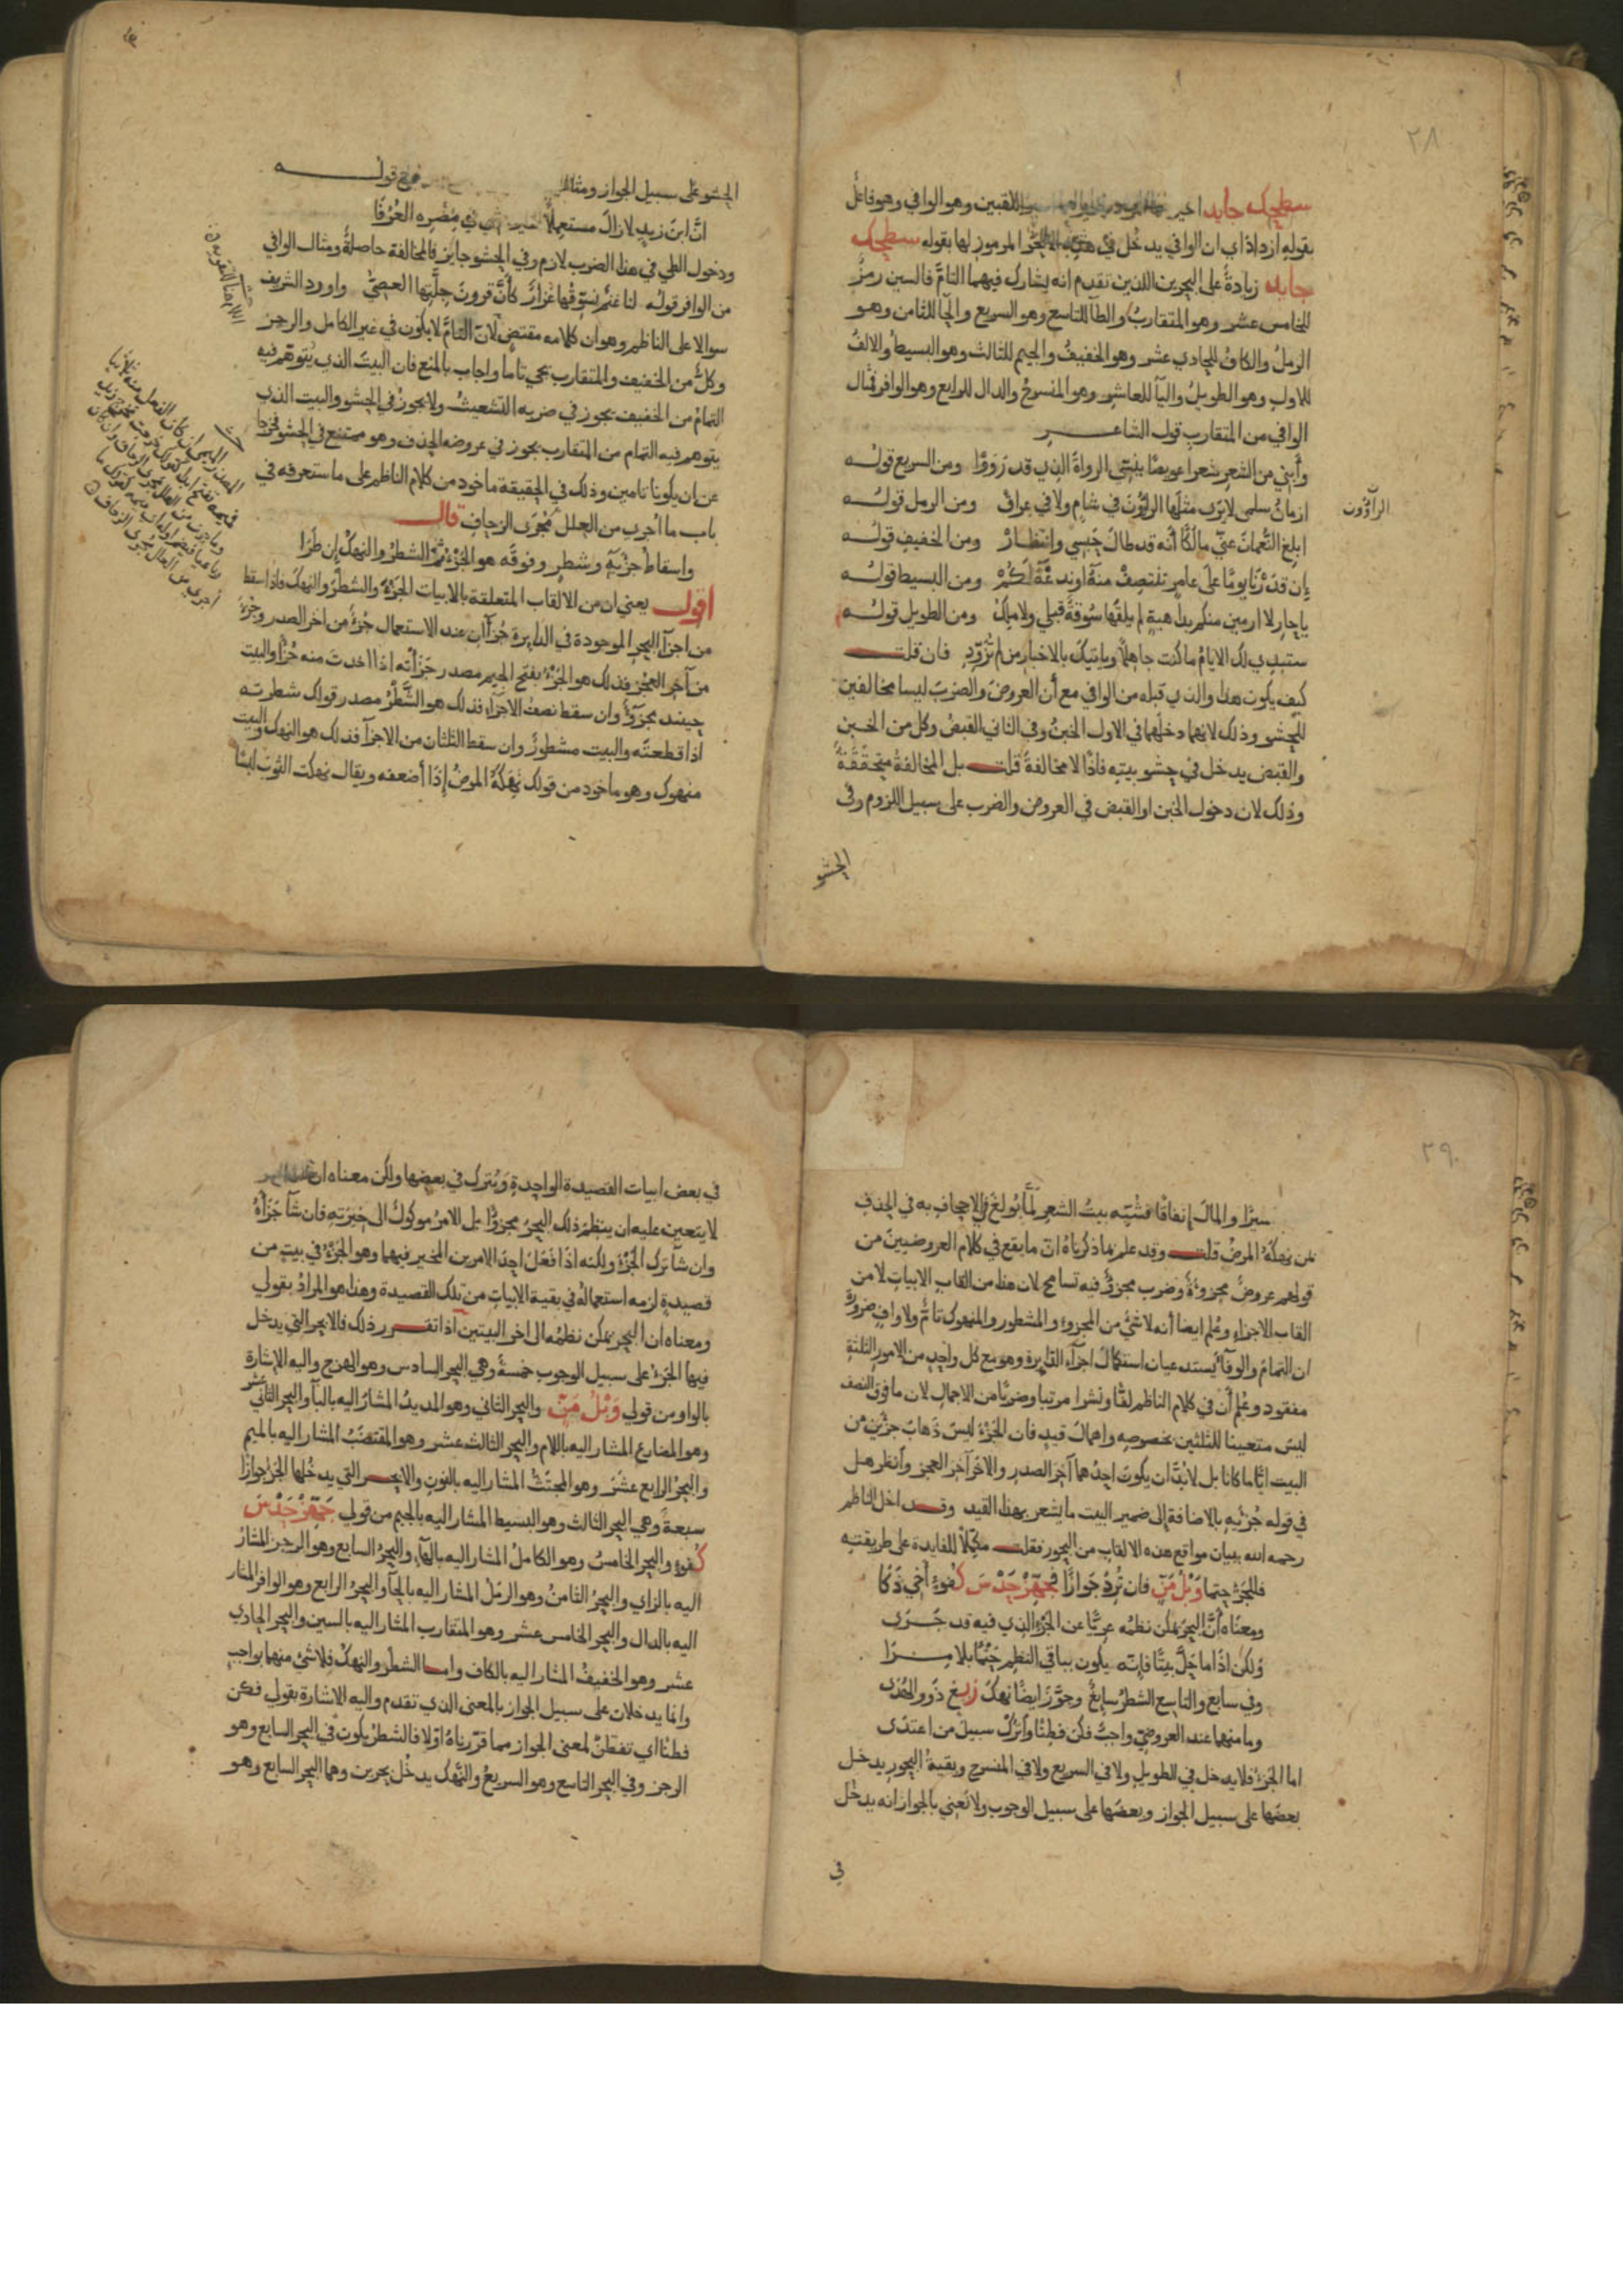 ٢٨
سطحك جابد اخير اللقبين وهو الوافي وهو فاعل
بقوله ازداد اي ان الوافي يدخل في هذه الابحر المرموز لها بقوله سطحك
جابد زيادة على البحرين اللذين تقدم انه يشارك فيهما التام فالسين رمز
للخامس عشر وهو المتقارب والطا للتاسع وهو السريع والحا للثامن وهو
الرمل والكاف للحادي عشر وهو الخفيف والجيم للثالث وهو البسيط والالف
للاول وهو الطويل واليا للعاشر وهو المنسرح والدال للرابع وهو الوافر فمثال
الوافي من المتقارب قول الشاعر
وأبني من الشعر شعرا عويصا ينسي الرواة الذي قد رووا ومن السريع قوله
ازمان سلمى لا يرى مثلها الراؤون في شام ولا في عراق ومن الرمل قوله
الراؤون
ابلغ النعمان عني مالكا أنه قد طال حبسي وانتظار ومن الخفيف قوله
إن قدرنا يوما على عامر ننتصف منه او ندعه لكم ومن البسيط قوله
يا حار لا ارمين منكم بداهية لم يلقها سوقة قبلي ولا ملك ومن الطويل قوله
ستبدي لك الايام ما كنت جاهلا وياتيك بالاخبار من لم تزود فان قلت
كيف يكون هذا والذي قبله من الوافي مع أن العروض والضرب ليسا مخالفين
للحشو وذلك لانهما دخلهما في الاول الخبن وفي الثاني القبض وكل من الخبن
والقبض يدخل في حشو بيته فاذا لا مخالفة قلت بل المخالفة متحققة
وذلك لان دخول الخبن او القبض في العروض والضرب على سبيل اللزوم وفي
الحشو
الحشو على سبيل الجواز ومثال قوله
ان ابن زيد لا زال مستعملا في مصره العرفا
ودخول الطي في هذا الضرب لازم وفي الحشو جايز فالمخالفة حاصلة ومثال الوافي
من الوافر قوله لنا غنم نسوقها غزار كأن قرون جلتها العصي واورد الشريف
سوالا على الناظم وهو ان كلامه مقتض لان التام لا يكون في غير الكامل والرجز
وكل من الخفيف والمتقارب يجي تاما واجاب بالمنع فان البيت الذي يتوهم فيه
التمام من الخفيف يجوز في ضربه التشعيث ولا يجوز في الحشو والبيت الذي
يتوهم فيه التمام من المتقارب يجوز في عروضه الحذف وهو ممتنع في الحشو فخرجا
عن ان يكونا تامين وذلك في الحقيقة ماخوذ من كلام الناظم على ما ستعرفه في
باب ما اجري من العلل مجرى الزحاف قال
واسقاط جزءيه وشطر وفوقه هو الجزء ثم الشطر والنهك إن طرا
اقول يعني ان من الالقاب المتعلقة بالابيات الجزء والشطر والنهك فاذا اسقط
من اجزا البحر الموجودة في الدايرة جزآن عند الاستعمال جزء من اخر الصدر وجزء
من آخر العجز فذلك هو الجزء بفتح الجيم مصدر جزأته اذا اخذت منه جزأ والبيت
حينئذ مجزوء وان سقط نصف الاجزاء فذلك هو الشطر مصدر قولك شطرته
اذا قطعته والبيت مشطور وان سقط الثلثان من الاجزآ فذلك هو النهك والبيت
منهوك وهو ماخوذ من قولك نهكه المرض إذا أضعفه ويقال نهكت الثوب لبسًا
٢٩
سيرا والمال إنفاقا فشبه بيت الشعر لما بولغ في الاجحاف به في الحذف
بمن نهكه المرض قلت وقد علم بما ذكرناه ان ما يقع في كلام العروضيين من
قولهم عروض مجزوءة وضرب مجزوء فيه تسامح لان هذا من القاب الابيات لا من
القاب الاجزاء وعلم ايضا أنه لا شي من المجزوء والمشطور والمنهوك تام ولا واف ضرورة
ان التمام والوفا يستدعيان استكمال اجزاء الدايرة وهو مع كل واحد من الامور الثلثة
مفقود وعلم أن في كلام الناظم لفا ونشرا مرتبا وضربا من الاجمال لان ما فوق النصف
ليس متعينا للثلثين بخصوصه واهمال قيد فان الجزء ليس ذهاب جزئين من
البيت ايا ما كانا بل لا بد ان يكون احدهما آخر الصدر والاخر آخر العجز وانظر هل
في قوله جزئيه بالاضافة إلى ضمير البيت ما يشعر بهذا القيد وقد اخل الناظم
رحمه الله ببيان مواقع هذه الالقاب من البحور فقلت مكملا للفايدة على طريقته
فللجزء حتما وبل من فان ترد جوازا فجهز حدس كفوء أخي ذكا
ومعناه أن البحر يمكن نظمه عريا عن الجزء الذي فيه قد جرى
ولكن اذا ما حل بيتا فإنه يكون بباقي النظم حتما بلا مرا
وفي سابع والتاسع الشطر سايغ وجوز ايضا نهك زيغ ذوو الهدى
وما منهما عند العروضي واجب فكن فطنا واترك سبيل من اعتدى
اما الجزء فلا يدخل في الطويل ولا في السريع ولا في المنسرح وبقية البحور يدخل
بعضها على سبيل الجواز وبعضها على سبيل الوجوب ولا نعني بالجواز انه يدخل
في
في بعض ابيات القصيدة الواحدة ويترك في بعضها ولكن معناه ان
لا يتعين عليه ان ينظم ذلك البحر مجزوا بل الامر موكول الى خيرته فان شآ جزأه
وان شا ترك الجزء ولكنه اذا فعل احد الامرين المخير فيهما وهو الجزء في بيت من
قصيدة لزمه استعماله في بقية الابيات من تلك القصيدة وهذا هو المراد بقولي
ومعناه ان البحر يمكن نظمه الى اخر البيتين اذا تقرر ذلك فالابحر التي يدخل
فيها الجزء على سبيل الوجوب خمسة وهي البحر السادس وهو الهزج واليه الاشارة
بالواو من قولي وبل من والبحر الثاني وهو المديد المشار اليه بالبآ والبحر الثاني عشر
وهو المضارع المشار اليه باللام والبحر الثالث عشر وهو المقتضب المشار اليه بالميم
والبحر الرابع عشر وهو المجتث المشار اليه بالنون والابحر التي يدخلها الجزء جوازا
سبعة وهي البحر الثالث وهو البسيط المشار اليه بالجيم من قولي جهز حدس
كفوء والبحر الخامس وهو الكامل المشار اليه بالهآ والبحر السابع وهو الرجز المشار
اليه بالزاي والبحر الثامن وهو الرمل المشار اليه بالحآ والبحر الرابع وهو الوافر المشار
اليه بالدال والبحر الخامس عشر وهو المتقارب المشار اليه بالسين والبحر الحادي
عشر وهو الخفيف المشار اليه بالكاف واما الشطر والنهك فلا شئ منهما بواجب
وانما يدخلان على سبيل الجواز بالمعنى الذي تقدم واليه الاشارة بقولي فكن
فطنا اي تفطن لمعنى الجواز مما قررناه اولا فالشطر يكون في البحر السابع وهو
الرجز وفي البحر التاسع وهو السريع والنهك يدخل بحرين وهما البحر السابع وهو